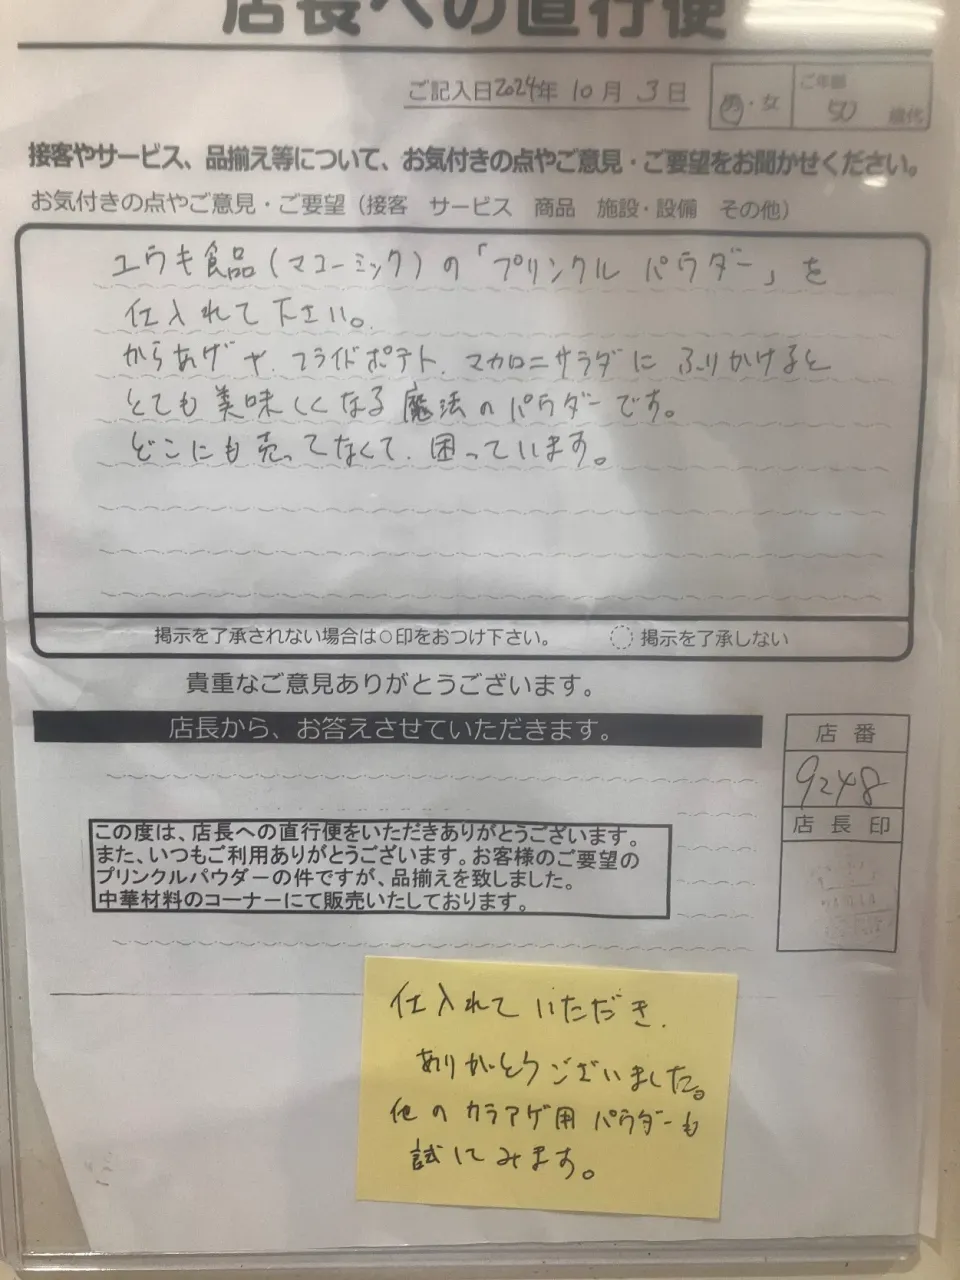 店長への直行便
ご記入日2024年 10月 3日
男・女
ご年齢
50 歳代
接客やサービス、品揃え等について、お気付きの点やご意見・ご要望をお聞かせください。
お気付きの点やご意見・ご要望（接客 サービス 商品 施設・設備 その他）
ユウキ食品(マコーミック)の「プリンクル パウダー」を
仕入れて下さい。
からあげや、フライドポテト、マカロニサラダにふりかけると
とても美味しくなる魔法のパウダーです。
どこにも売ってなくて、困っています。
掲示を了承されない場合は○印をおつけ下さい。 掲示を了承しない
貴重なご意見ありがとうございます。
店長から、お答えさせていただきます。
店番
9248
店長印
この度は、店長への直行便をいただきありがとうございます。
また、いつもご利用ありがとうございます。お客様のご要望の
プリンクルパウダーの件ですが、品揃えを致しました。
中華材料のコーナーにて販売いたしております。
仕入れていただき、
ありがとうございました。
他のカラアゲ用パウダーも
試してみます。